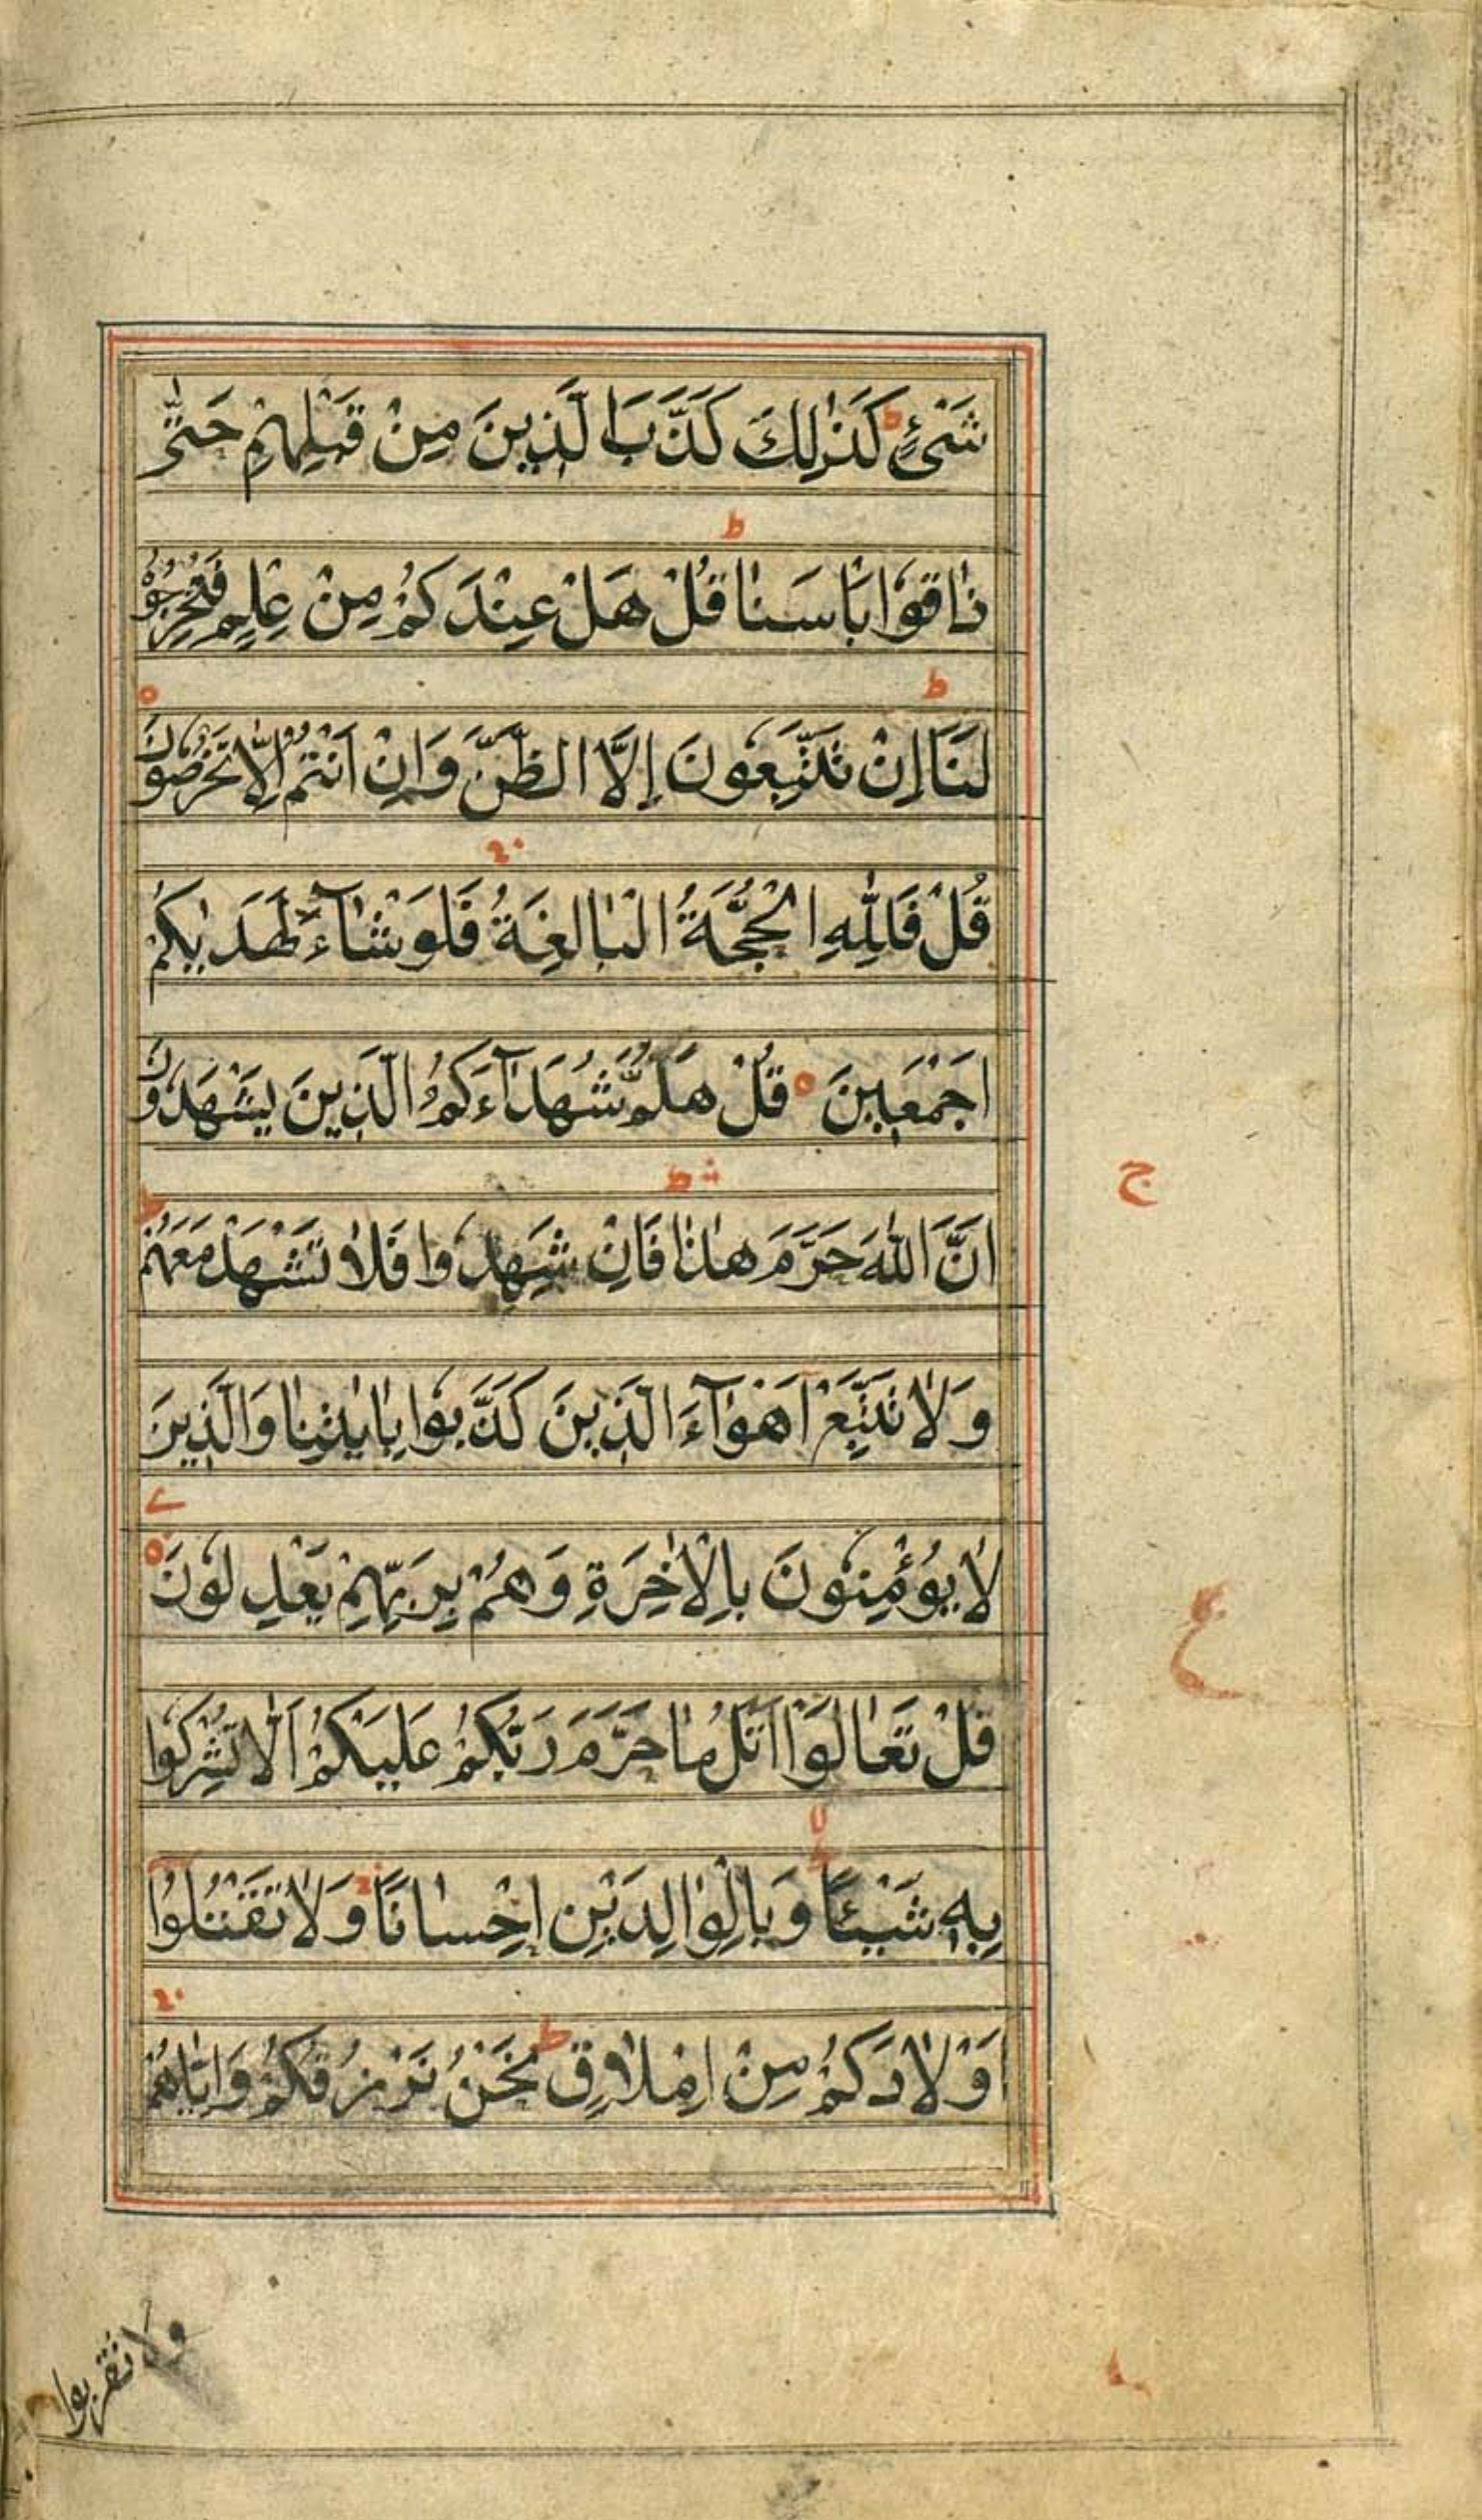 شَیْءٍ ط كَذٰلِكَ كَذَّبَ الَّذِینَ مِنْ قَبْلِهِمْ حَتّٰى
ذَاقُوا بَاسَنَا ط قُلْ هَلْ عِنْدَكُمْ مِنْ عِلْمٍ فَتُخْرِجُوْهُ
لَنَا ط اِنْ تَتَّبِعُونَ اِلَّا الظَّنَّ وَاِنْ اَنْتُمْ اِلَّا تَخْرُصُونَ ه
قُلْ فَلِلّٰهِ الْحُجَّةُ الْبَالِغَةُ فَلَوْ شَآءَ لَهَدٰیكُمْ
اَجْمَعِینَ ه قُلْ هَلُمَّ شُهَدَآءَكُمُ الَّذِینَ یَشْهَدُونَ
اَنَّ اللّٰهَ حَرَّمَ هٰذَا فَاِنْ شَهِدُوا فَلَا تَشْهَدْ مَعَهُمْ ط
ج
وَلَا تَتَّبِعْ اَهْوَآءَ الَّذِینَ كَذَّبُوا بِاٰیٰتِنَا وَالَّذِینَ
لَا یُؤْمِنُونَ بِالْاٰخِرَةِ وَهُمْ بِرَبِّهِمْ یَعْدِلُونَ ه
ع
قُلْ تَعَالَوْا اَتْلُ مَا حَرَّمَ رَبُّكُمْ عَلَیْكُمْ اَلَّا تُشْرِكُوا
بِهٖ شَیْئًا وَبِالْوَالِدَیْنِ اِحْسَانًا وَلَا تَقْتُلُوْا
اَوْلَادَكُمْ مِنْ اِمْلَاقٍ ط نَحْنُ نَرْزُقُكُمْ وَاِیَّاهُمْ
ولا تقربوا